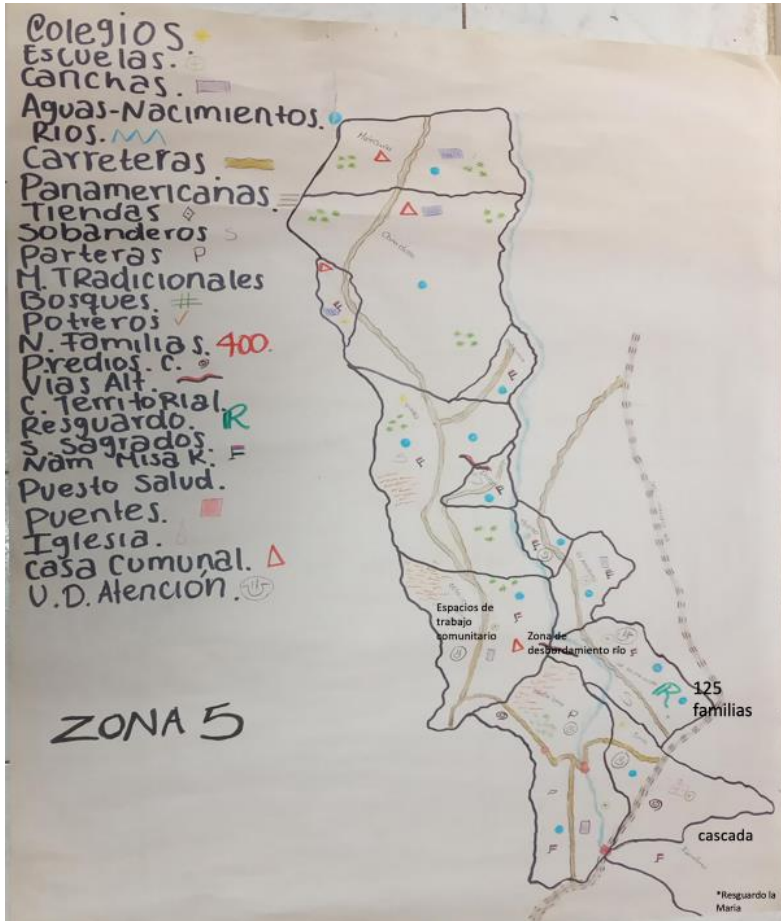 Colegios.
Escuelas.
Canchas.
Aguas-Nacimientos.
Rios.
Carreteras
Panamericanas.
Tiendas
Sobanderos S
Parteras P
M. TRadicionales
Bosques.
Potreros
N. Familias. 400.
Predios. C.
Vias Alt.
C. TerritoRial.
Resguardo. R
S. Sagrados.
Nam Misak. F
Puesto Salud.
Puentes.
Iglesia.
casa comunal.
U.D. Atención.
ZONA 5
Espacios de
trabajo
comunitario
Zona de
desbordamiento río
R
125
familias
cascada
*Resguardo la
Maria